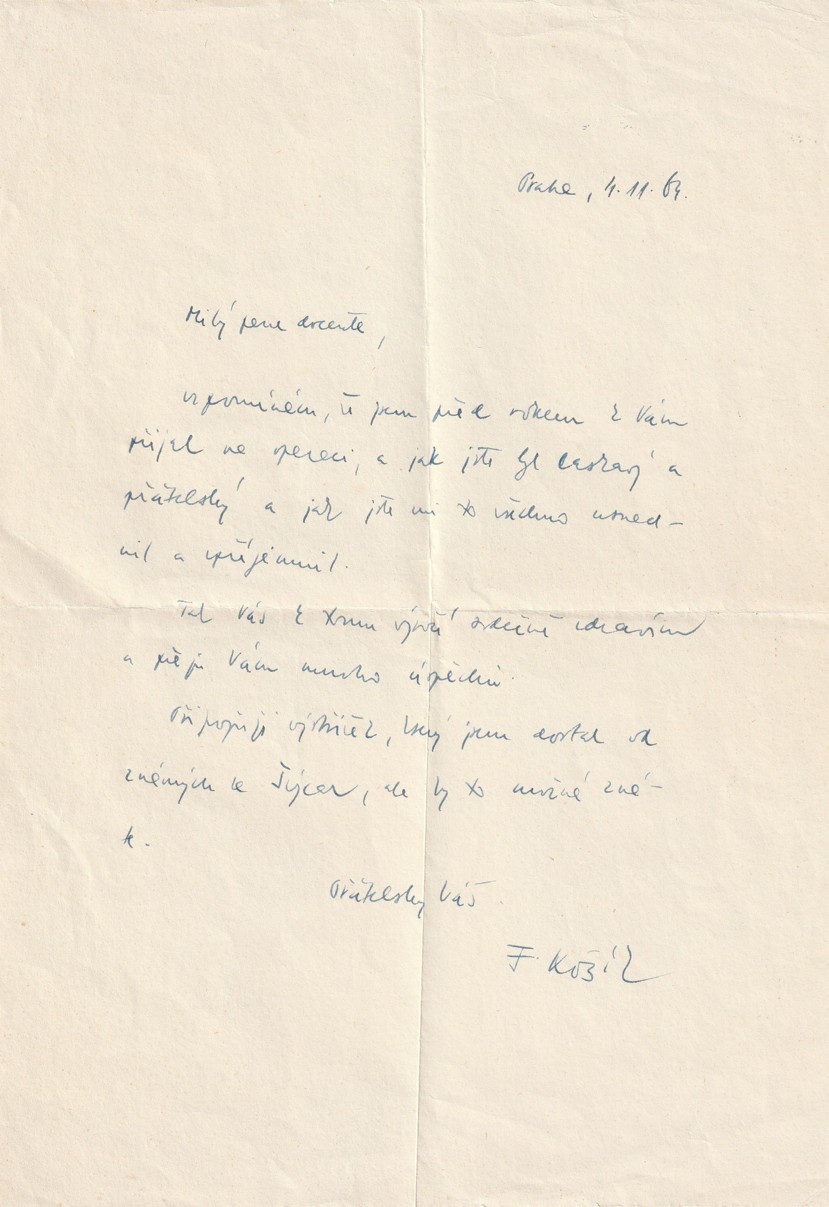 Praha, 4. 11. 64.
Milý pane docente,
vzpomínám, že jsem před rokem k Vám
přijel na operaci, a jak jste byl laskavý a
přátelský a jak jste mi to všechno usnad-
nil a zpříjemnil.
Tak Vás k tomu výročí srdečně zdravím
a přeji Vám mnoho úspěchů.
Připojuji výstřižek, který jsem dostal od
známých ze Švýcar, ale Vy to možná zná-
te.
Přátelsky Váš
F. Kožík